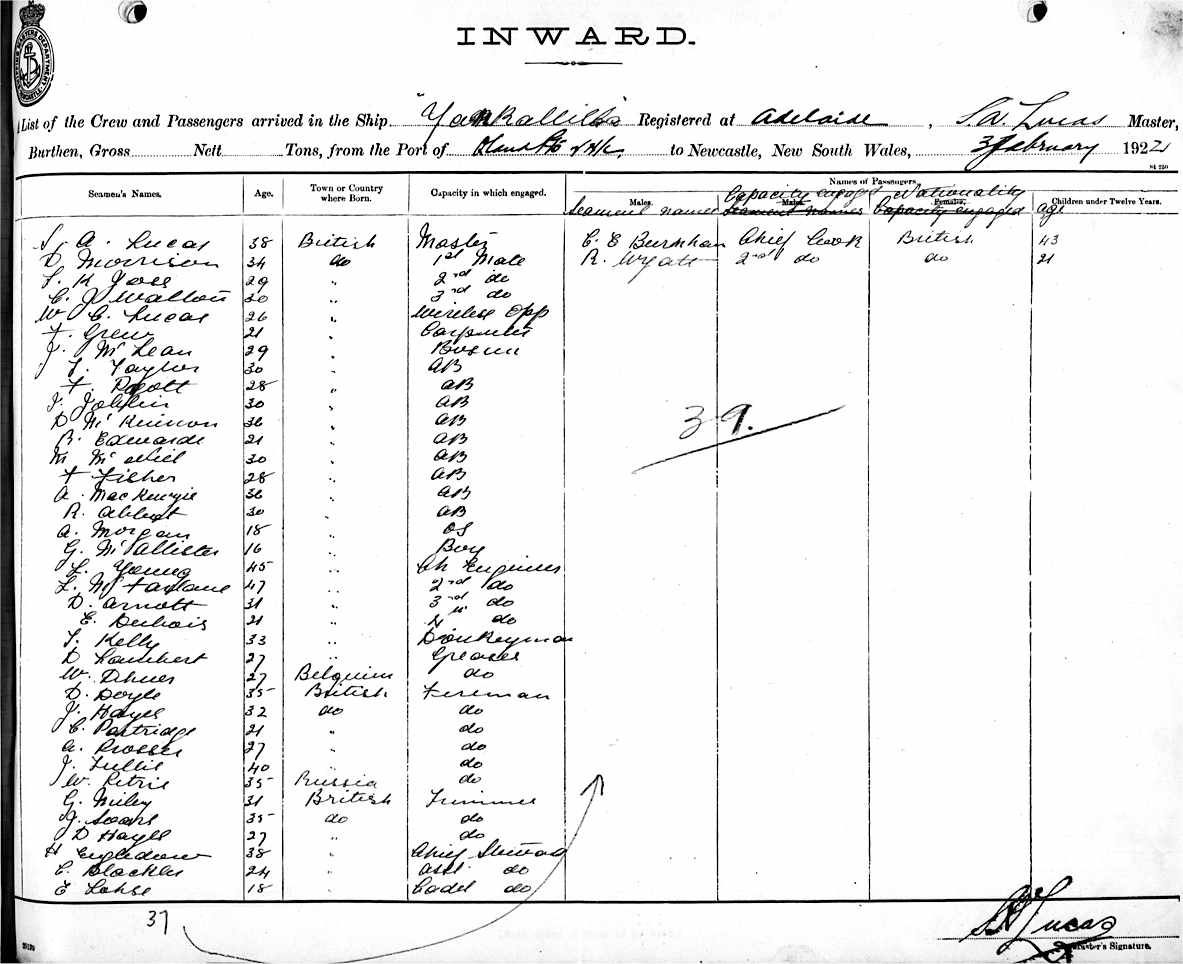 INWARD.
List of the Crew and Passengers arrived in the Ship "Yankalilla" Registered at Adelaide, S. A. Lucas Master,
Burthen, Gross Nett Tons, from the Port of to Newcastle, New South Wales, 3 February 1922
Names of Passengers
Seamen's Names. Age. Town or Country where Born. Capacity in which engaged. Males. Males. Females. Children under Twelve Years.
Seamens names Capacity engaged Nationality age
Seamens names Capacity engaged
S. A. Lucas 38 British Master C. E Burnham Chief Cook British 43
D Morrison 34 do 1st Mate R. Wyatt 2nd do do 21
29 " 2nd do
C. J Walton 30 " 3rd do
W C. Lucas 26 " Wireless Opp
F. Grew 21 " Carpenter
J. McLean 29 " Bosun
Taylor 30 " AB
28 " AB
30 " AB
D McKinnon 36 " AB
R. Edwards 21 " AB
M McNeil 30 " AB
F Fisher 28 " AB
A. MacKenzie 36 " AB
R. Abbot 30 " AB
A. Morgan 18 " OS
G. McCallister 16 " Boy
L. Young 45 " Ch Engineer
L. McFarlane 47 " 2nd do
D. Arnott 31 " 3rd do
E. 21 " 4 do
Kelly 33 " Donkeyman
D Lambert 27 " Greaser
W. 27 Belguim do
D. Doyle 35 British Fireman
J. Hayes 32 do do
C. Partridge 21 " do
A. Prosser 27 " do
J. 40 " do
W. Petrie 35 Russia do
G. 31 British Trimmer
J. Soars 35 do do
D Hayes 27 " do
H 38 " Chief Steward
C. Blackler 24 " asst do
E Lohse 18 " Cadet do
39.
37
S A Lucas
Master's Signature.